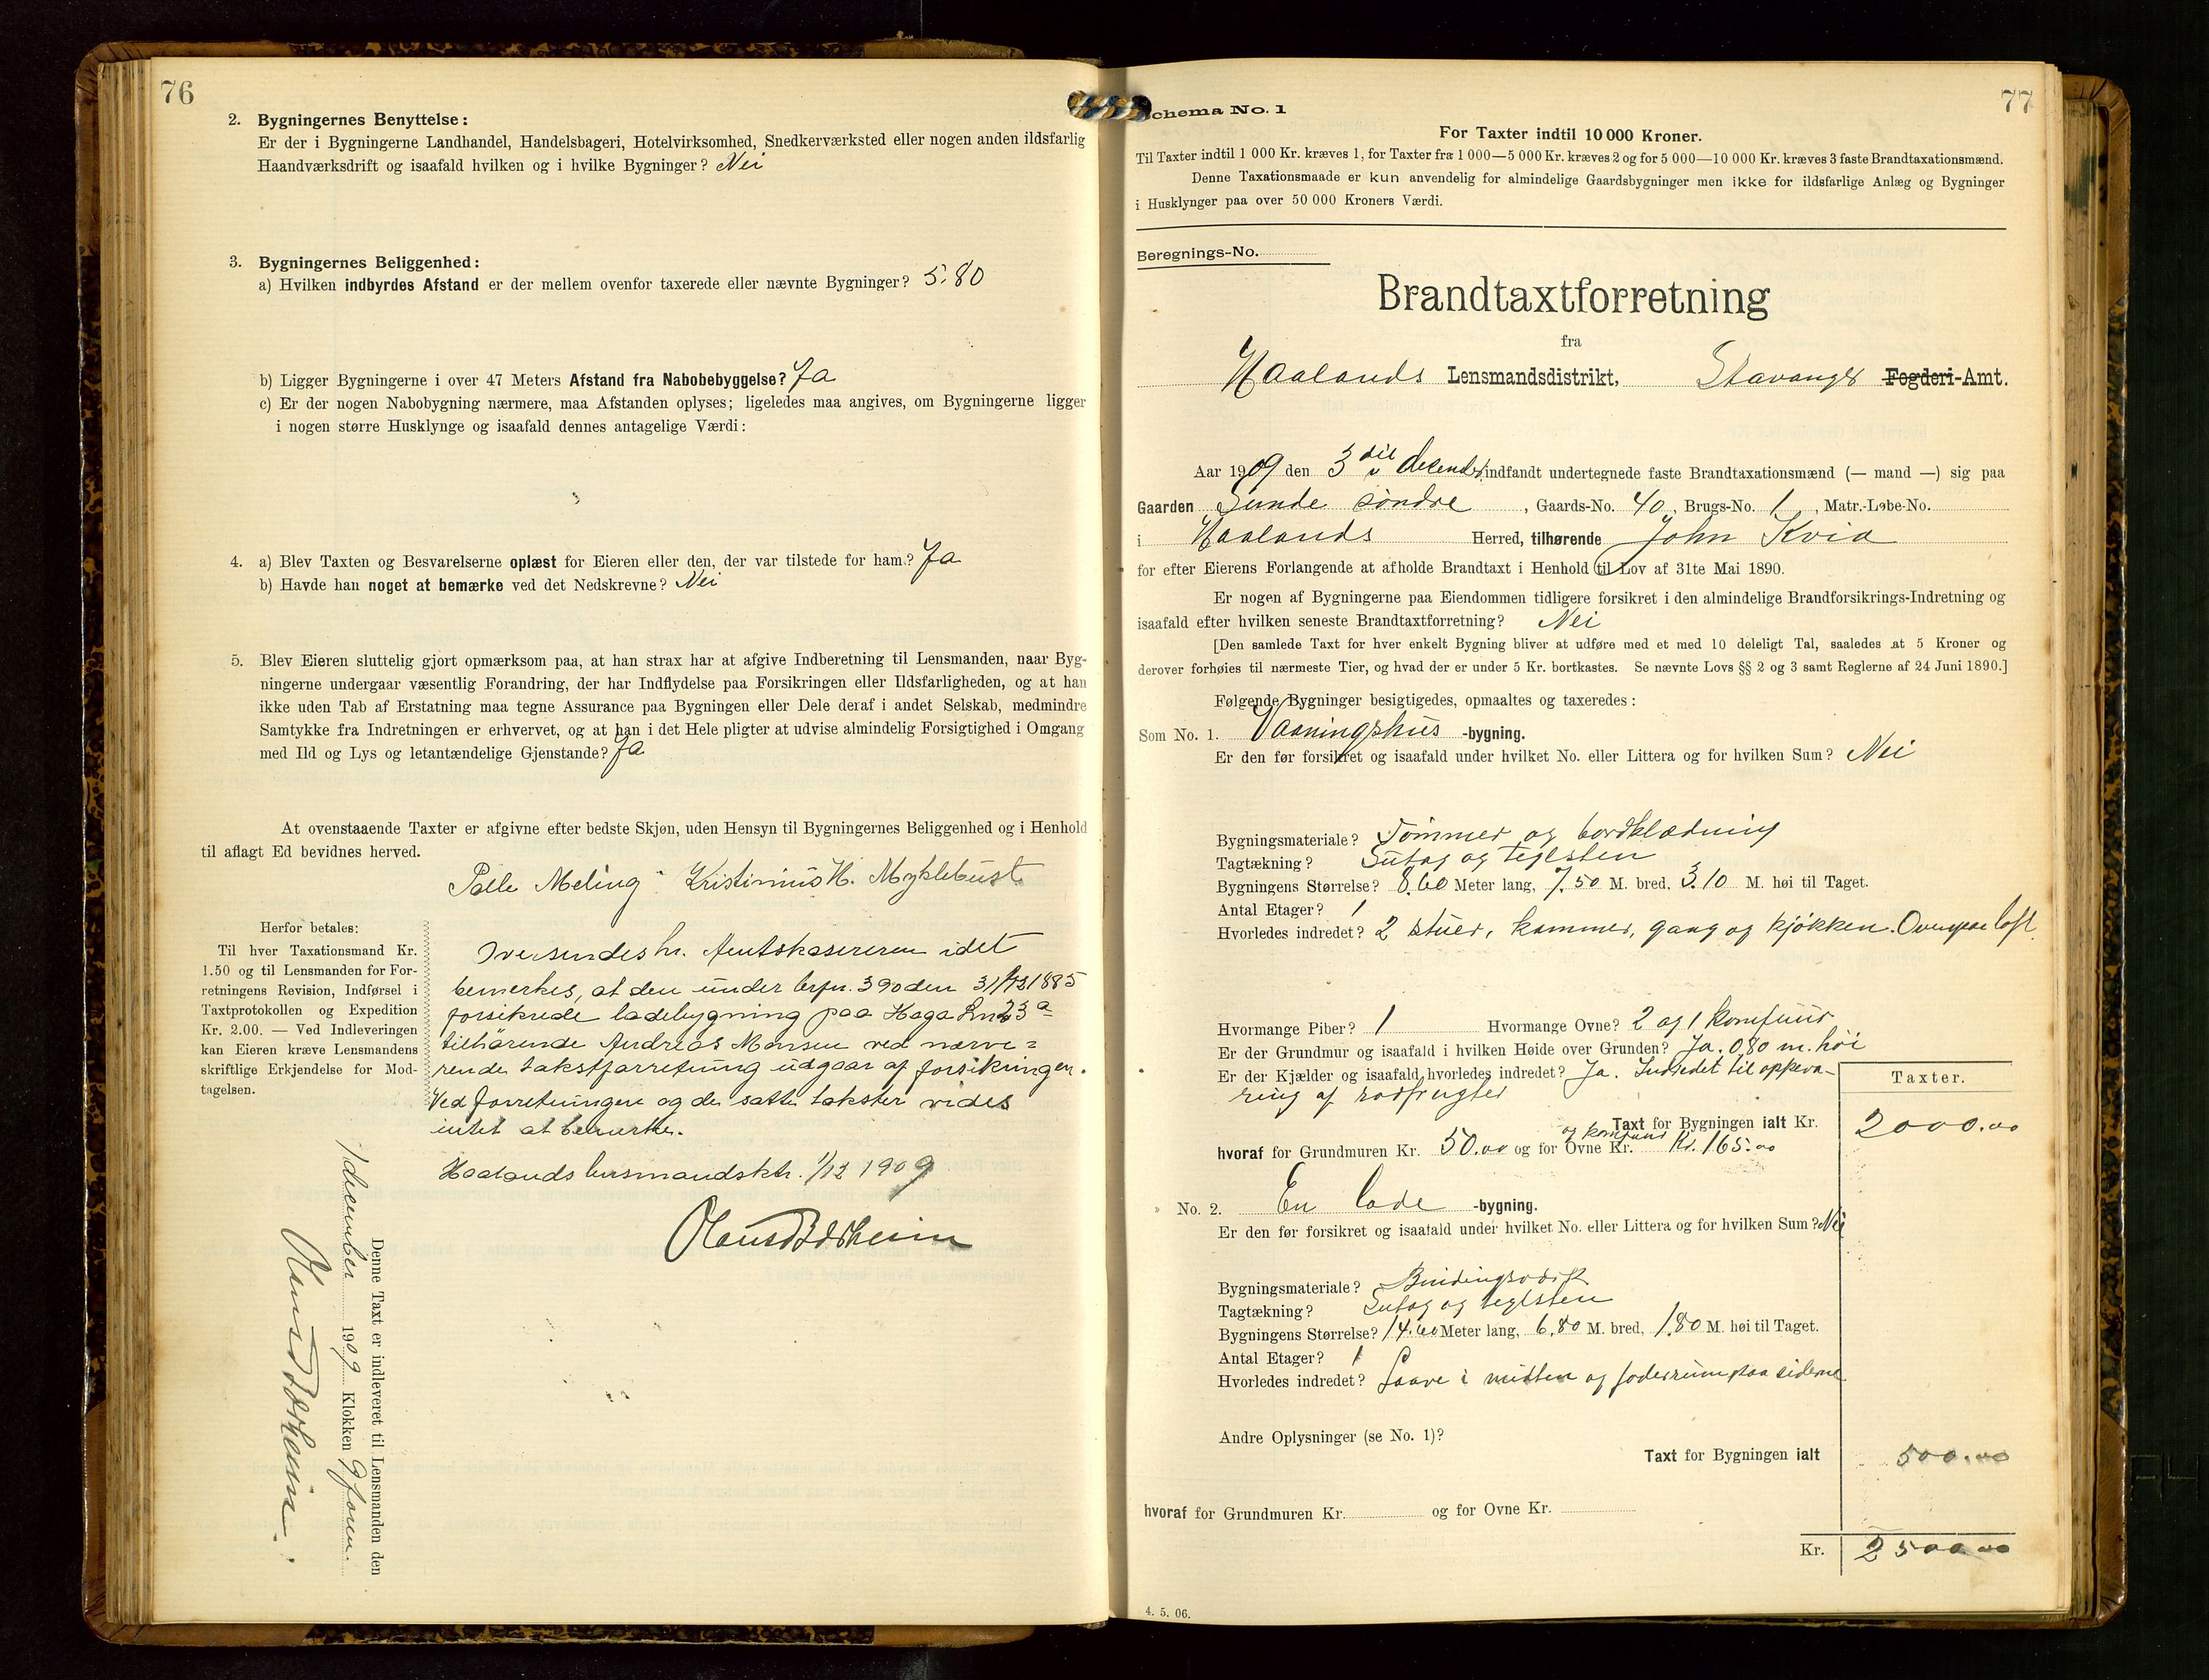 76
2. Bygningernes Benyttelse:
Er der i Bygningerne Landhandel, Handelsbageri, Hotelvirksomhed, Snedkerværksted eller nogen anden ildsfarlig
Haandværksdrift og isaafald hvilken og i hvilke Bygninger? Nei
3. Bygningernes Beliggenhed:
a) Hvilken indbyrdes Afstand er der mellem ovenfor taxerede eller nævnte Bygninger? 5.80
b) Ligger Bygningerne i over 47 Meters Afstand fra Nabobebyggelse? Ja
c) Er der nogen Nabobygning nærmere, maa Afstanden oplyses; ligeledes maa angives, om Bygningerne ligger
i nogen større Husklynge og isaafald dennes antagelige Værdi:
4. a) Blev Taxten og Besvarelserne oplæst for Eieren eller den, der var tilstede for ham? Ja
b) Havde han noget at bemærke ved det Nedskrevne? Nei
5. Blev Eieren sluttelig gjort opmærksom paa, at han strax har at afgive Indberetning til Lensmanden, naar Byg-
ningerne undergaar væsentlig Forandring, der har Indflydelse paa Forsikringen eller Ildsfarligheden, og at han
ikke uden Tab af Erstatning maa tegne Assurance paa Bygningen eller Dele deraf i andet Selskab, medmindre
Samtykke fra Indretningen er erhvervet, og at han i det Hele pligter at udvise almindelig Forsigtighed i Omgang
med Ild og Lys og letantændelige Gjenstande? Ja
At ovenstaaende Taxter er afgivne efter bedste Skjøn, uden Hensyn til Bygningernes Beliggenhed og i Henhold
til aflagt Ed bevidnes herved.
Palle Meling Kristinius H. Myklebust
Herfor betales:
Til hver Taxationsmand Kr.
1.50 og til Lensmanden for For-
retningens Revision, Indførsel i
Taxtprotokollen og Expedition
Kr. 2.00. — Ved Indleveringen
kan Eieren kræve Lensmandens
skriftlige Erkjendelse for Mod-
tagelsen.
Oversendes hr. Amtskasereren idet
bemerkes, at den under brfn. 390 den 31/12 1885
forsikrede ladebygning paa Haga Lnr 23 a
tilhørende Andreas Monsen ved nærve=
rende takstforretning udgaar af forsikringen.
Ved forretningen og de satte takster vides
intet at bemerke.
Haalands lensmandsktr. 1/12 1909
Denne Taxt er indleveret til Lensmanden den
1 december 1909 Klokken 9 form.
77
Schema No. 1
For Taxter indtil 10 000 Kroner.
Til Taxter indtil 1 000 Kr. kræves 1, for Taxter fra 1 000—5 000 Kr. kræves 2 og for 5 000—10 000 Kr. kræves 3 faste Brandtaxationsmænd.
Denne Taxationsmaade er kun anvendelig for almindelige Gaardsbygninger men ikke for ildsfarlige Anlæg og Bygninger
i Husklynger paa over 50 000 Kroners Værdi.
Beregnings-No.
Brandtaxtforretning
fra
Haalands Lensmandsdistrikt, Stavanger Fogderi-Amt.
Aar 1909 den 3 die december indfandt undertegnede faste Brandtaxationsmænd (— mand —) sig paa
Gaarden Sunde søndre, Gaards-No. 40, Brugs-No. 1, Matr.-Løbe-No.
i Haalands Herred, tilhørende John Kvia
for efter Eierens Forlangende at afholde Brandtaxt i Henhold til Lov af 31te Mai 1890.
Er nogen af Bygningerne paa Eiendommen tidligere forsikret i den almindelige Brandforsikrings-Indretning og
isaafald efter hvilken seneste Brandtaxtforretning? Nei
[Den samlede Taxt for hver enkelt Bygning bliver at udføre med et med 10 deleligt Tal, saaledes at 5 Kroner og
derover forhøies til nærmeste Tier, og hvad der er under 5 Kr. bortkastes. Se nævnte Lovs §§ 2 og 3 samt Reglerne af 24 Juni 1890.]
Følgende Bygninger besigtigedes, opmaaltes og taxeredes:
Som No. 1. Vaaningshus -bygning.
Er den før forsikret og isaafald under hvilket No. eller Littera og for hvilken Sum? Nei
Bygningsmateriale? Tømmer og bordklædning
Tagtækning? Sutag og teglsten
Bygningens Størrelse? 8.60 Meter lang, 7.50 M. bred, 3.10 M. høi til Taget.
Antal Etager? 1
Hvorledes indredet? 2 stuer, kammer, gang og kjøkken. Ovenpaa loft
Hvormange Piber? 1 Hvormange Ovne? 2 og 1 komfuur
Er der Grundmur og isaafald i hvilken Høide over Grunden? Ja. 0,80 m. høi
Er der Kjælder og isaafald hvorledes indredet? Ja. Indredet til oppeva-
ring af rodfrugter
Taxter.
Taxt for Bygningen ialt Kr. 2000.00
hvoraf for Grundmuren Kr. 50.00 og for Ovne og komfuur Kr. Kr. 165.00
No. 2. En lade -bygning.
Er den før forsikret og isaafald under hvilket No. eller Littera og for hvilken Sum? Nei
Bygningsmateriale? Bindingsværk
Tagtækning? Sutag og teglsten
Bygningens Størrelse? 14.60 Meter lang, 6.80 M. bred, 1.80 M. høi til Taget.
Antal Etager? 1
Hvorledes indredet? Laave i midten og foderrum paa siderne
Andre Oplysninger (se No. 1)?
Taxt for Bygningen ialt 500.00
hvoraf for Grundmuren Kr. og for Ovne Kr.
Kr. 2500.00
4. 5. 06.